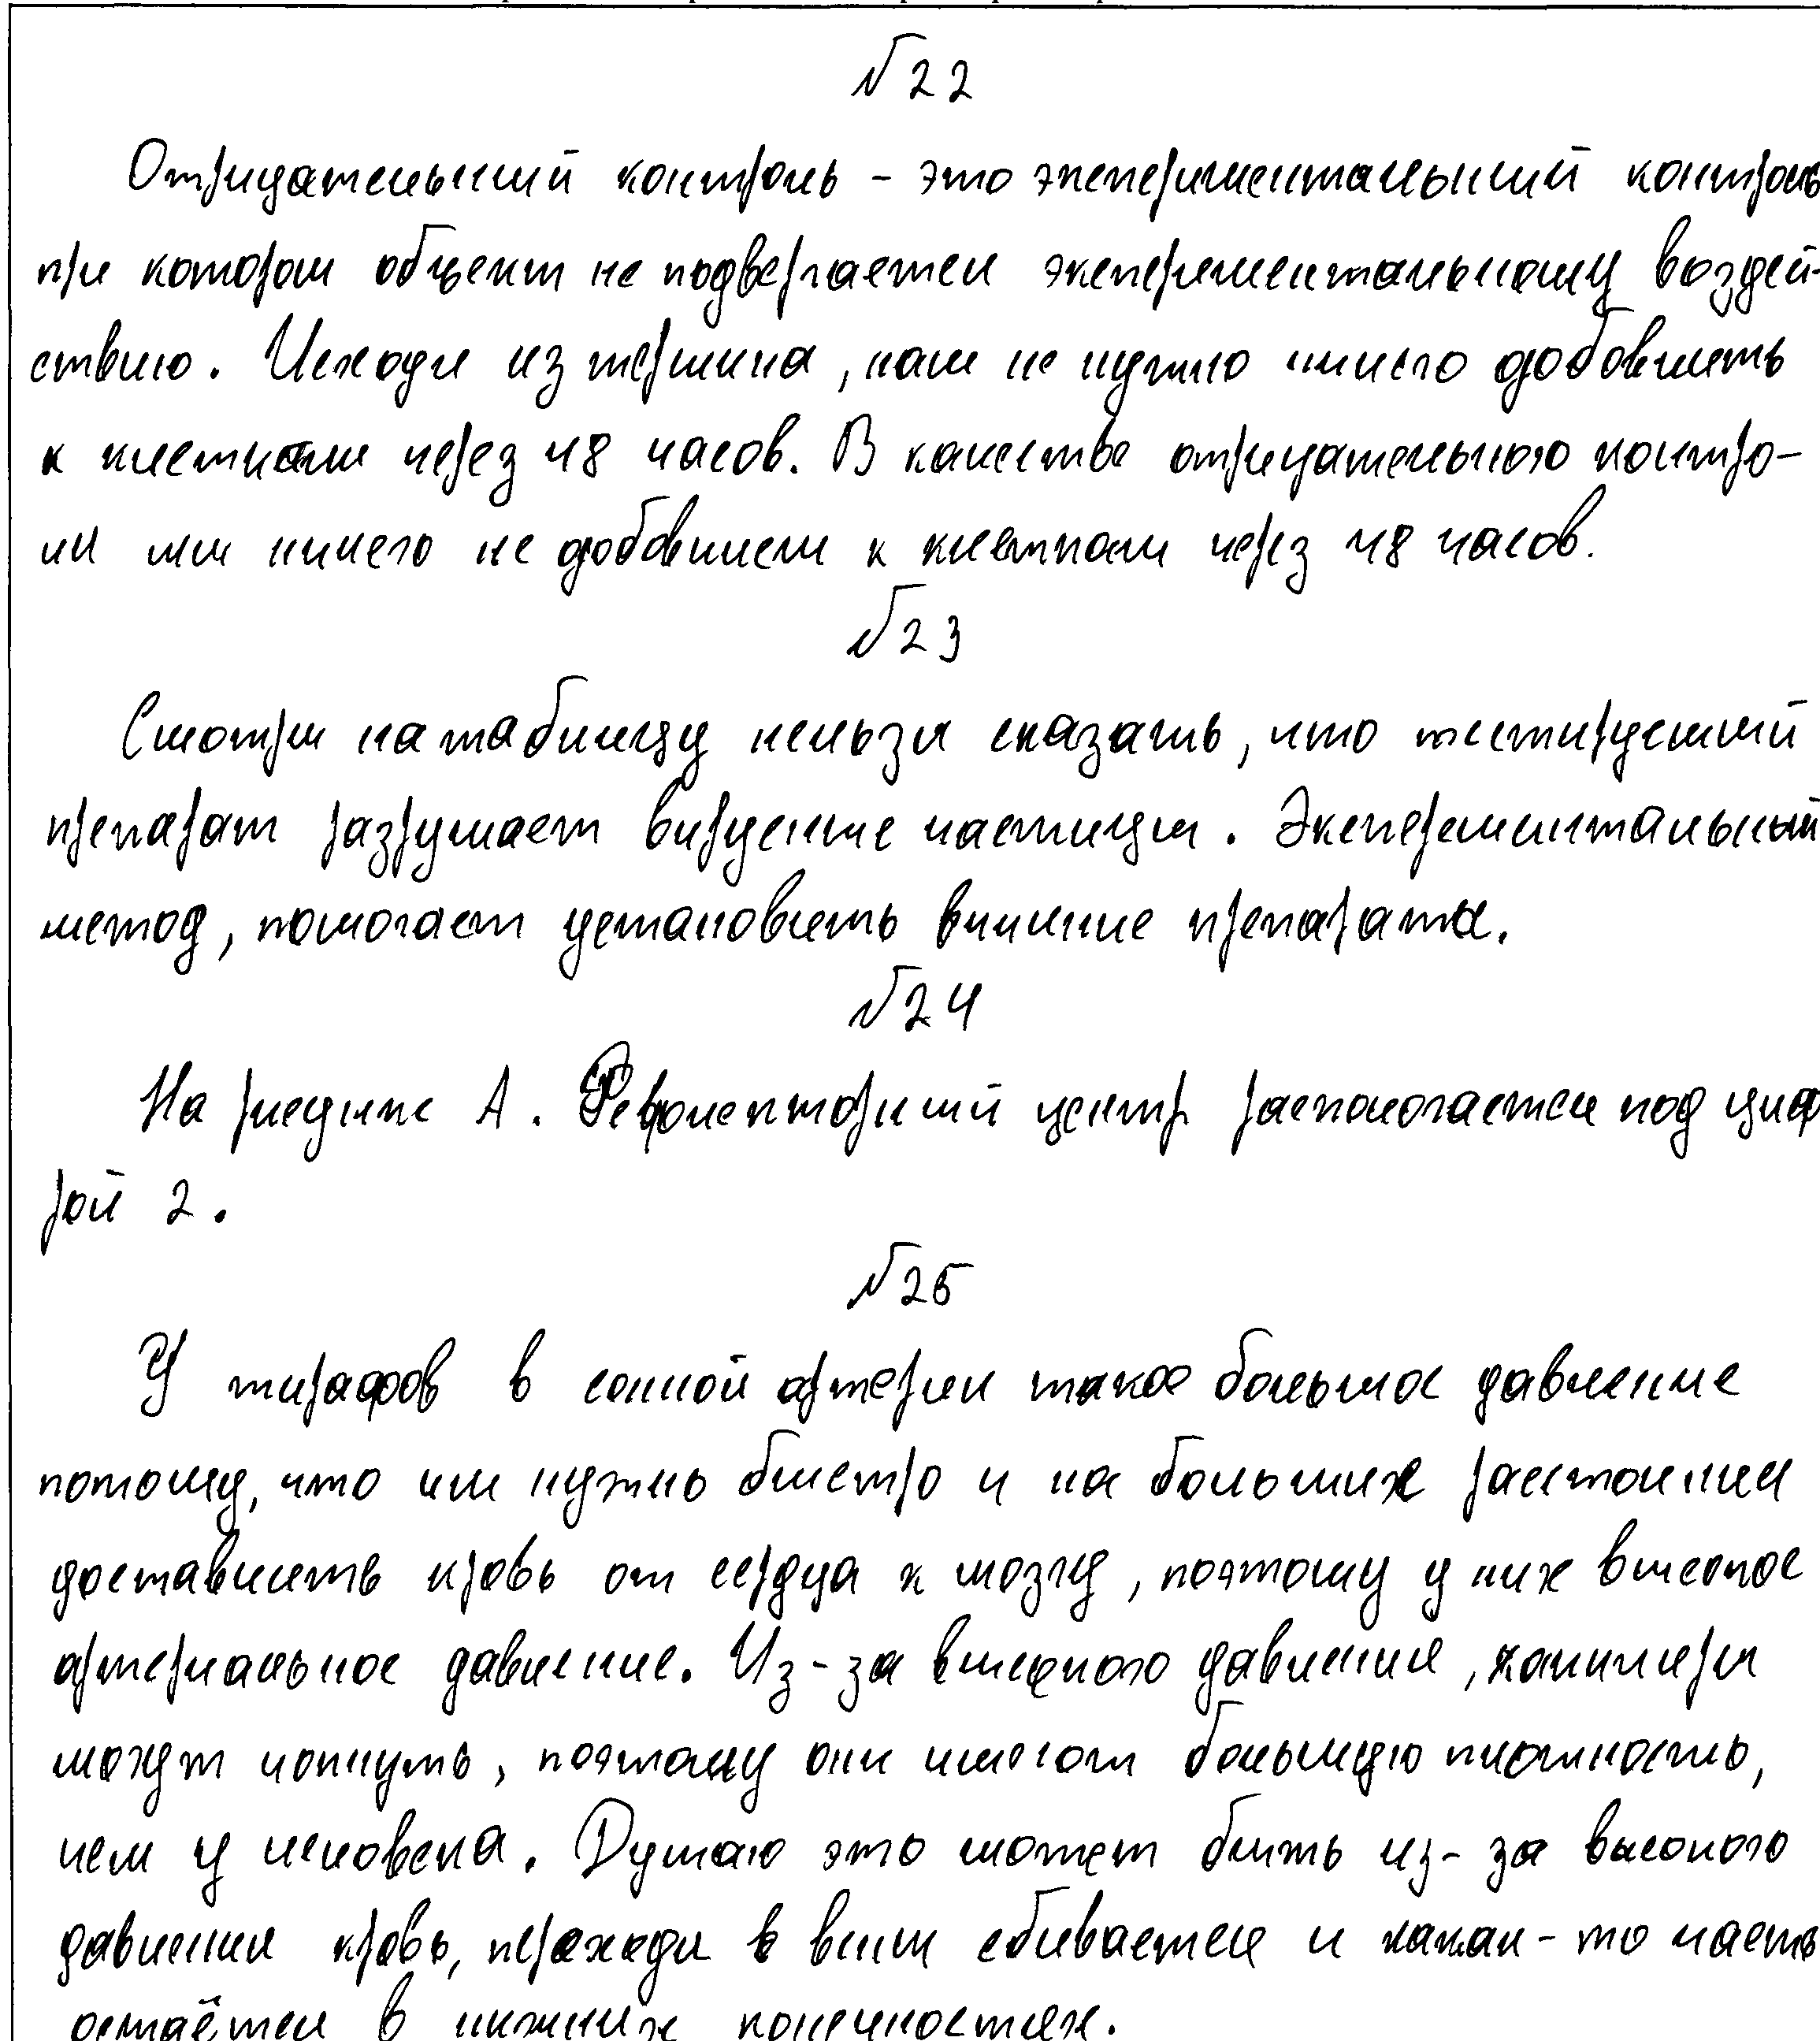 №22
Отрицательный контроль - это экспериментальный контроль
при котором объект не подвергается эксперементальному воздей-
ствию. Исходя из термина, нам не нужно ничего добовлять
к клеткам через 48 часов. В качестве отрицательного контро-
ля мы ничего не добовляем к клеткам через 48 часов.
№23
Смотря на таблицу нельзя сказать, что тестируемый
препарат разрушает вирусные частицы. Эксперементальный
метод, помогает установить влияние препарата.
№24
На рисунке А. центр распологается под циф
рой 2.
№25
У жирафов в сонной артерии такое большое давление
потому, что им нужно быстро и на больших растоянии
доставлять кровь от сердца к мозгу, поэтому у них высокое
артериальное давление. Из-за высокого давления, капиляры
могут лопнуть, поэтому они имеют большую плотность,
чем у человека. Думаю это может быть из-за высокого
давления кровь, переходя в вены сбивается и какая-то часть
остаётся в нижних конечностях.